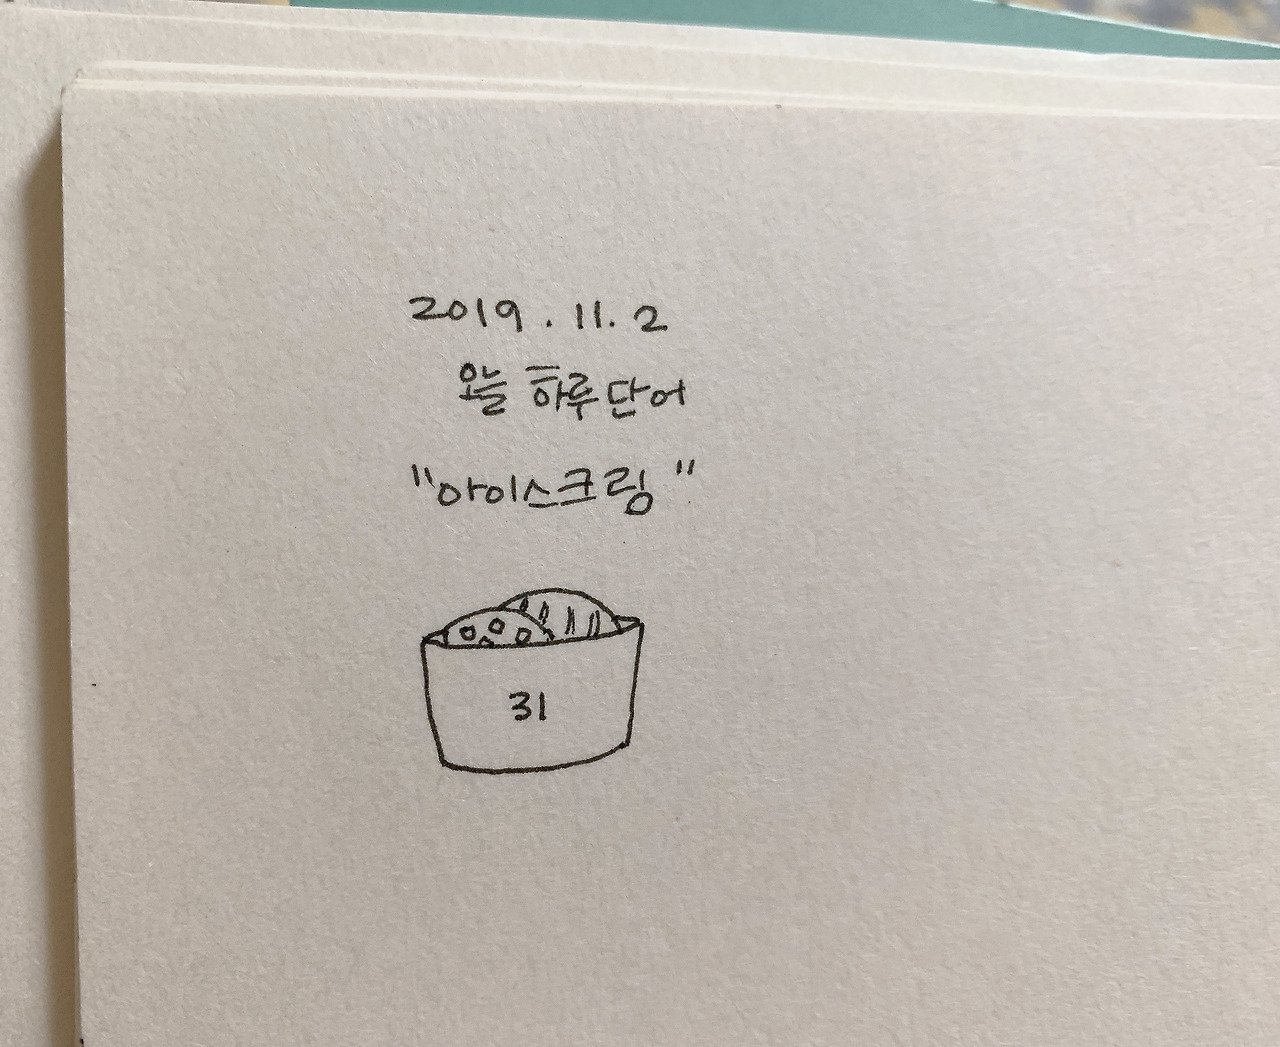 2019. 11. 2
오늘 하루 단어
"아이스크림"
31